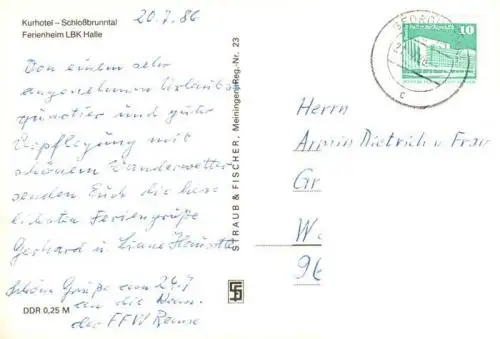 Kurhotel – Schloßbrunntal
Ferienheim LBK Halle
20.7.86
Von einem sehr
angenehmen Urlaubs
quartier und guter
Verpflegung mit
schönem Wanderwetter
senden Euch die herz
lichsten Feriengrüße
Gerhard u. Liane
Schöne Grüße am 24.7
an die
der FFW
DDR 0,25 M
STRAUB & FISCHER, Meiningen
Nr. 23
10
Herrn
Armin Dietrich u Frau
Gr
W
96